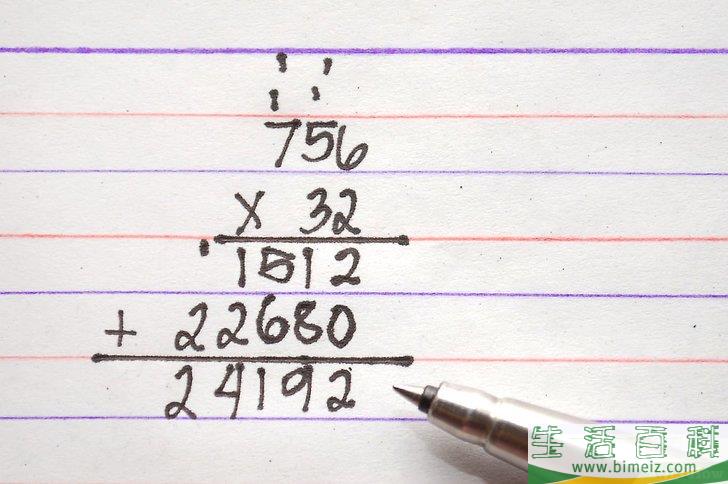 1 1
1 1
756
x 32
1
1512
+ 22680
24192
生活百科
www.bimeiz.com